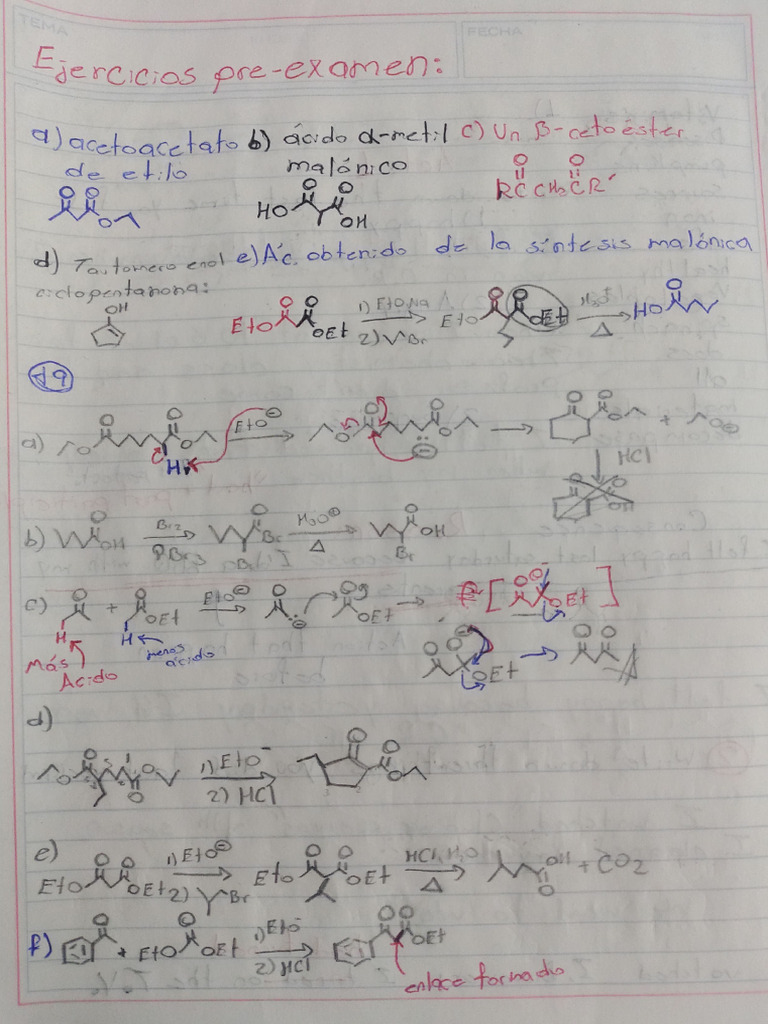 TEMA
FECHA
Ejercicios pre-examen:
a) acetoacetato b) ácido α-metil c) Un β-cetoéster
de etilo malónico
O O
O O O O RCCH2CR'
O HO OH
d) Tautomero enol e) Ác. obtenido de la síntesis malónica
ciclopentanona:
OH O O 1) EtONa O O H3O+ O
EtO OEt 2) Br EtO OEt Δ HO
19
a) O O O O EtO⊖ O O O O O O O + O⊖
H ⊖ HCl
b) O OH Br2 O Br H3O⊕ O OH
PBr3 Br Δ Br
c) O + O OEt EtO⊖ O ⊖ O OEt [ O O- OEt ]
H H
Más menos
Acido ácido
O O⊖ OEt O O H
d)
O O O O 1) EtO- O O O
2) HCl
e) O O 1) EtO⊖ O O HCl, H2O OH + CO2
EtO OEt 2) Br EtO OEt Δ O
f) O + EtO O OEt 1) EtO- O O OEt
2) HCl
enlace formado